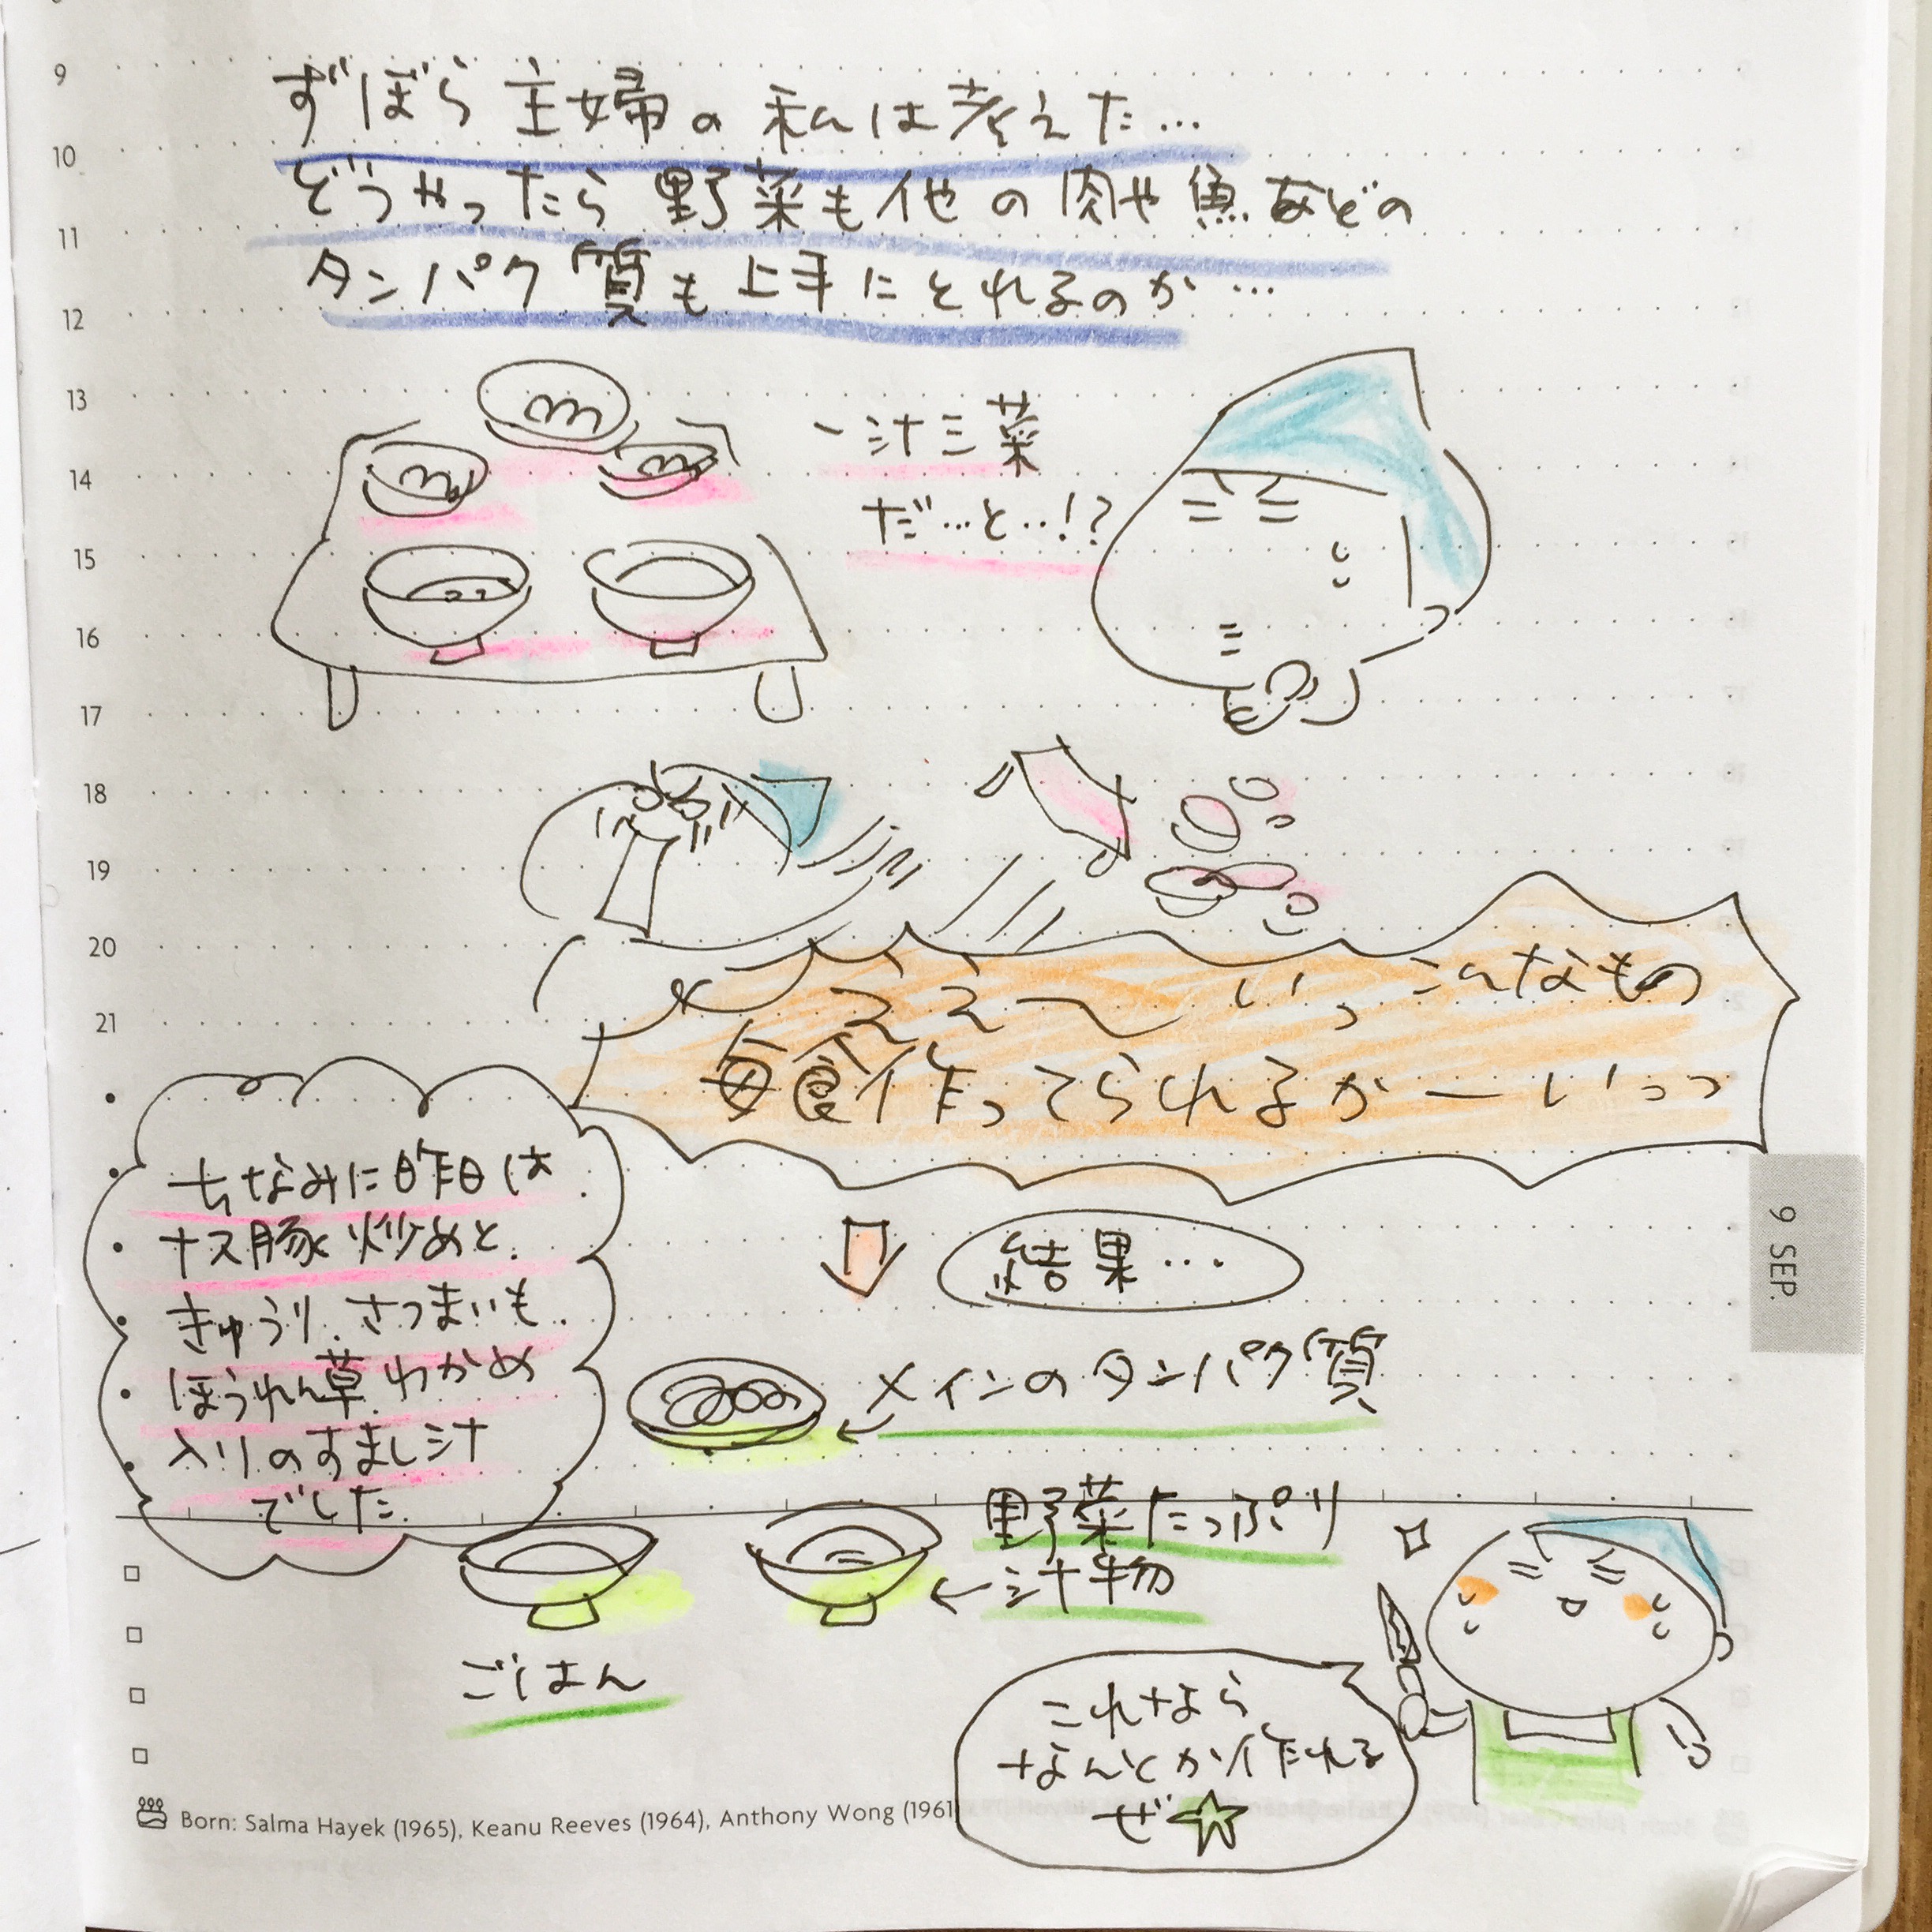 9
10
11
12
13
14
15
16
17
18
19
20
21
ずぼら主婦の私は考えた…
どうやったら野菜も他の肉や魚などの
タンパク質も上手にとれるのか…
一汁三菜
だ…と…!?
ええ〜いっこんなもの
毎食作ってられるかーいっっ
ちなみに昨日は
ナス豚炒めと、
きゅうり、さつまいも、
ほうれん草、わかめ
入りのすまし汁
でした。
結果…
メインのタンパク質
野菜たっぷり
汁物
ごはん
これなら
なんとか作れる
ぜ☆
9 SEP.
Born: Salma Hayek (1965), Keanu Reeves (1964), Anthony Wong (1961